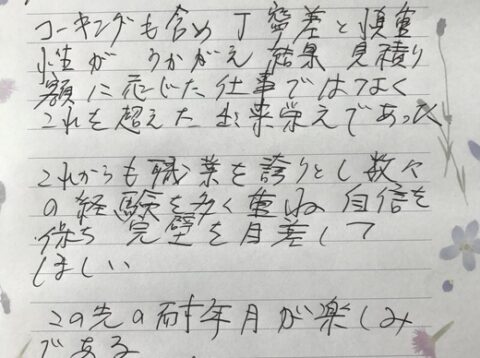 コーキングも含め丁寧差と慎重
性がうかがえ 結果 見積り
額に応じた仕事ではなく
これを超えた出来栄えであった
これからも職業を誇りとし数々
の経験を多く重ね 自信を
保ち 完璧を目差して
ほしい
この先の耐年月が楽しみ
である